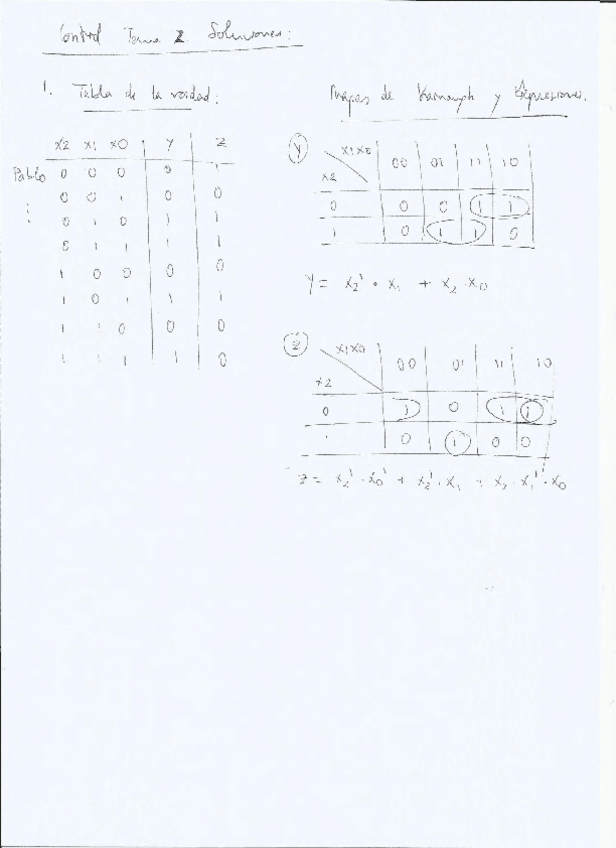 Control Tema 2. Soluciones:
1. Tabla de la verdad:
x2 x1 x0 Y Z
Pablo 0 0 0 0 1
0 0 1 0 0
0 1 0 1 1
0 1 1 1 1
1 0 0 0 0
1 0 1 1 1
1 1 0 0 0
1 1 1 1 0
Mapas de Karnaugh y Expresiones.
Y
x1x0 00 01 11 10
x2
0 0 0 1 1
1 0 1 1 0
Y = x2' · x1 + x2 · x0
Z
x1x0 00 01 11 10
x2
0 1 0 1 1
1 0 1 0 0
z = x2' · x0' + x2' · x1 + x2 · x1' · x0